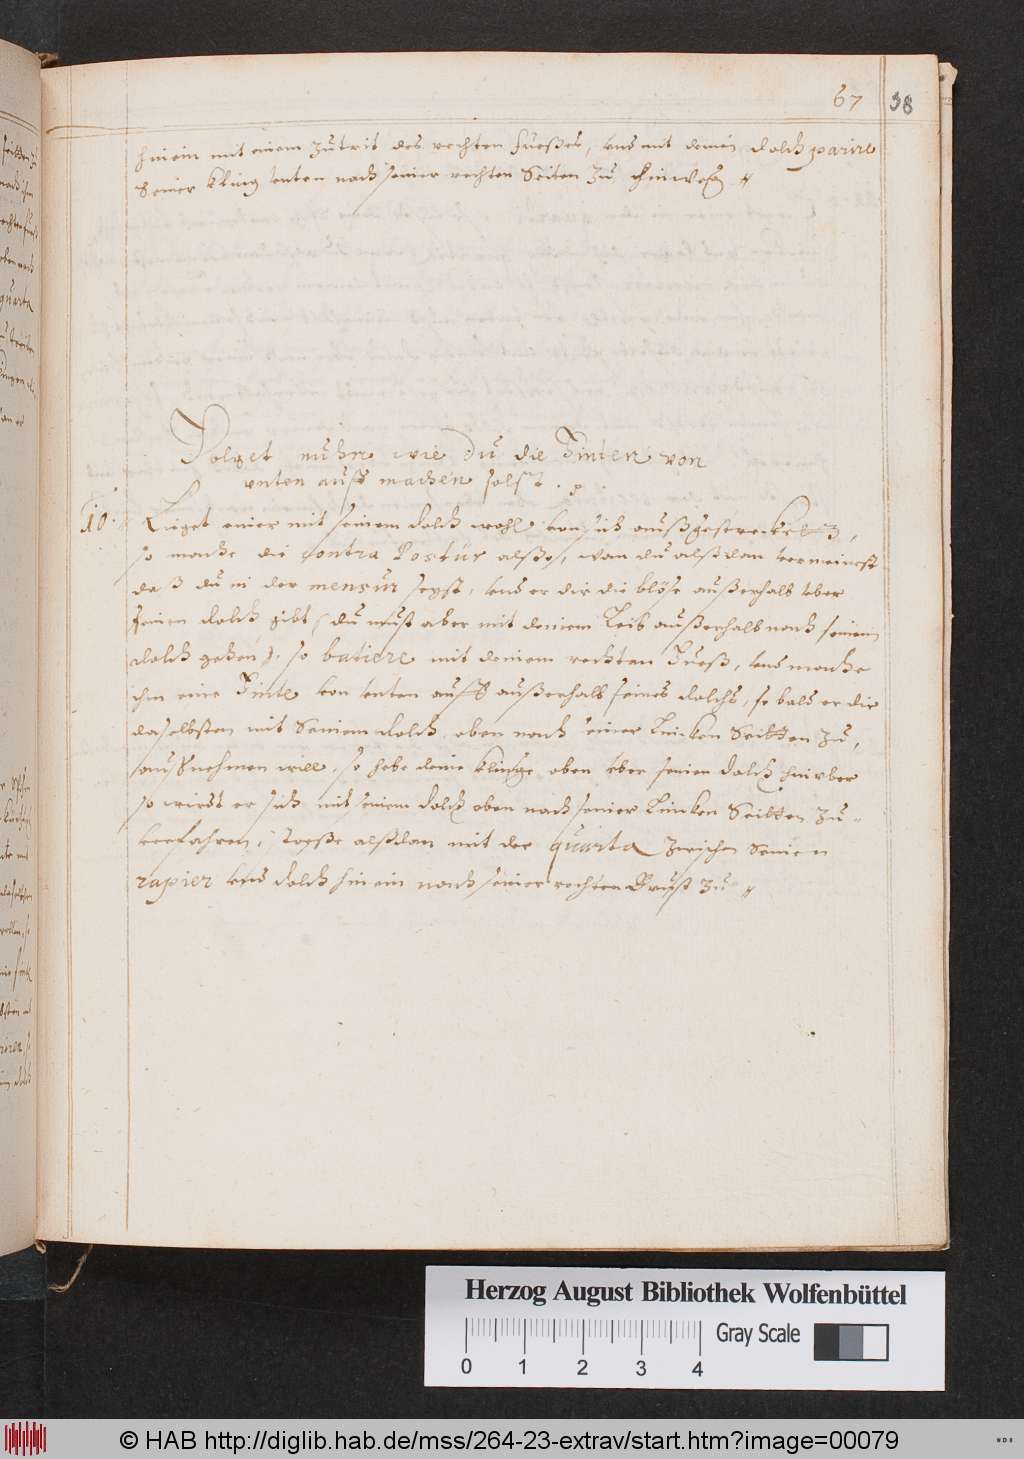 67 38
hinein mit einem zutrit des rechten fueßes, vnd mit deinem dolch parire
Seiner kling vnten nach seiner rechten Seiten zu hinweg
Volget nuhn wie du die Finten von
vnten auff machen solst.
10. Lieget einer mit seinem dolch wohl von sich außgestrecket,
so mache die contra Postur alßo, wan du alßdan vermeinest
daß du in der mensur seyst, vnd er dir die blöse außerhalb vber
seinen dolch gibt (du must aber mit deinem Leib außerhalb nach seinem
dolch gehen). so batiere mit deinem rechten Fueß, vnd mache
ihm eine Finte von vnten auff außerhalb seines dolchs, so bald er dir
daselbsten mit Seinem dolch oben nach seiner Lincken Seitten zu,
außnehmen will, so hebe deine klinge oben vber seinen dolch hinvber
so wirdt er sich mit seinem dolch oben nach seiner Lincken Seitten zu
verfahren, stoeße alßdan mit der quarta zwischen Seinen
rapier vnd dolch hinein nach seiner rechten Brust zu
Herzog August Bibliothek Wolfenbüttel
Gray Scale
0 1 2 3 4
© HAB http://diglib.hab.de/mss/264-23-extrav/start.htm?image=00079